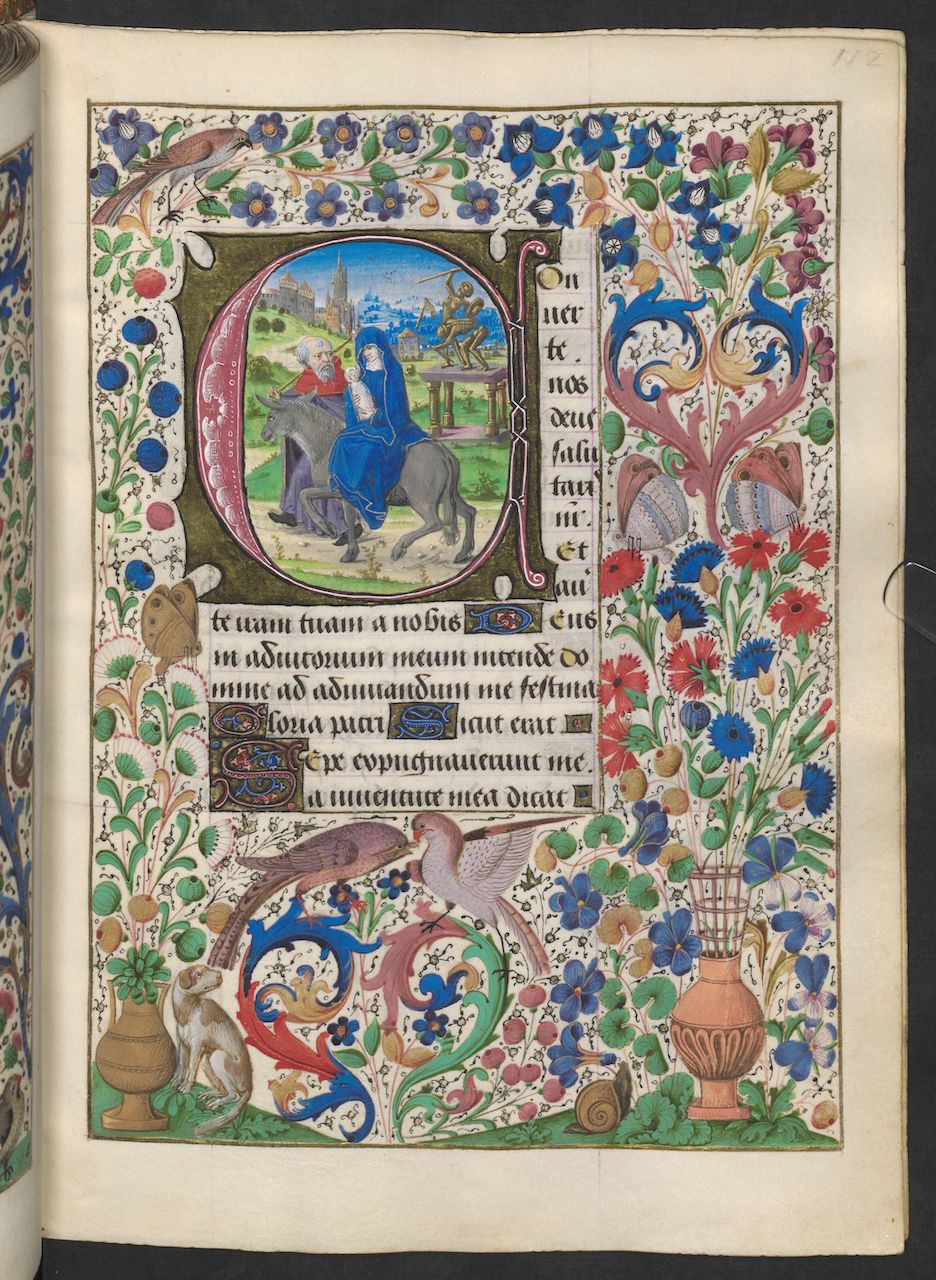 COn
uer
te.
nos
deus
salu
tari
nr̄.
Et
au̓
te iram tuam a nobis DEus
in adiutorium meum intende Do
mine ad adiuuandum me festina
Gloria patri Sicut erat
SEpe expugnauerunt me
a iuuentute mea dicat